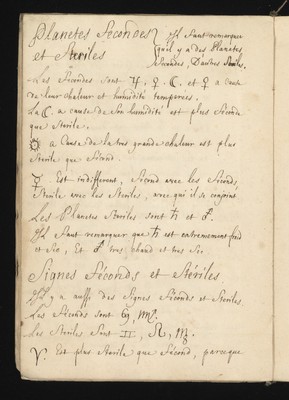 Planetes Fécondes
et Steriles
Il faut remarquer
qu'il y a des Planetes
fécondes, D'autres steriles.
Les fécondes sont ♃. ♀. ☾. et ♀ a cause
de leur chaleur et humidité temperées.
La ☾. a cause de son humidité est plus féconde
que sterile.
☼ a cause de la tres grande chaleur est plus
sterile que fécond.
☿ Est indifferent, fécond avec les féconds,
sterile avec les steriles, avec qui il se conjoint
Les Planetes steriles sont ♄ et ♂.
Il faut remarquer que ♄ est extremement froid
et sec, Et ♂ tres chaud et tres sec
Signes féconds et stériles
Il y a aussi des signes féconds et steriles
Les féconds sont ♋, ♏.
Les steriles sont ♊, ♌, ♍.
♈. Est plus sterile que fécond, parceque